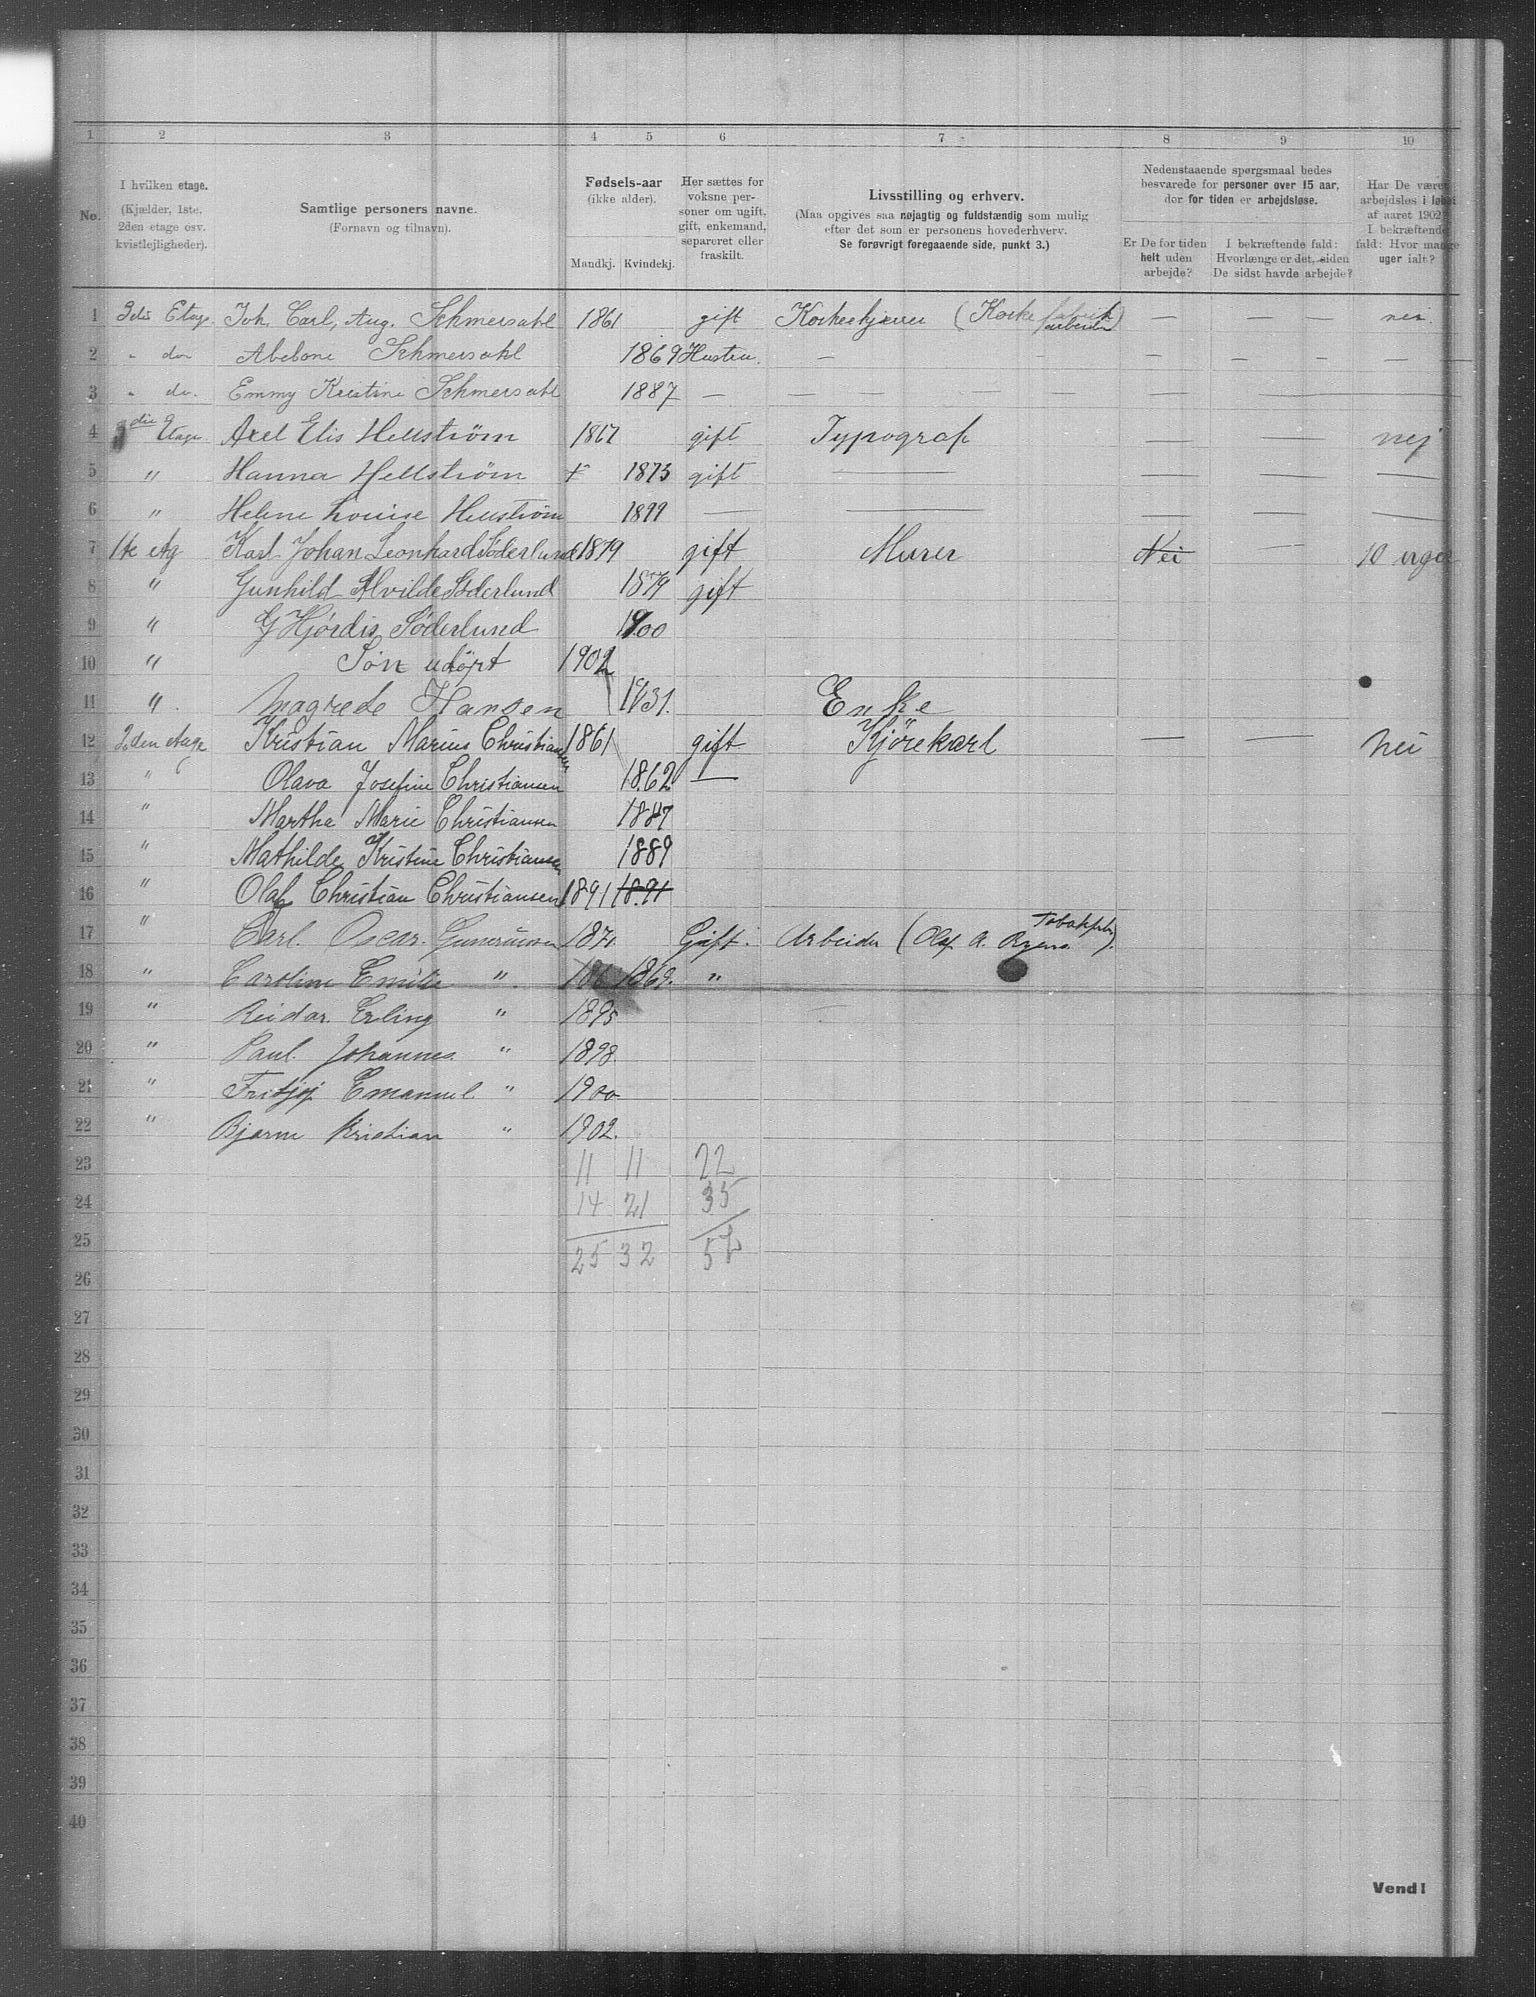 1 2 3 4 5 6 7 8 9 10
No.
I hvilken etage.
(Kjælder, 1ste,
2den etage osv.
kvistlejligheder).
Samtlige personers navne.
(Fornavn og tilnavn).
Fødsels-aar
(ikke alder).
Mandkj. Kvindekj.
Her sættes for
voksne per-
soner om ugift,
gift, enkemand,
separeret eller
fraskilt.
Livsstilling og erhverv.
(Maa opgives saa nøjagtig og fuldstændig som mulig
efter det som er personens hovederhverv.
Se forøvrigt foregaaende side, punkt 3.)
Nedenstaaende spørgsmaal bedes
besvarede for personer over 15 aar,
der for tiden er arbejdsløse.
Er De for tiden
helt uden
arbejde?
I bekræftende fald:
Hvorlænge er det, siden
De sidst havde arbejde?
Har De været
arbejdsløs i løbet
af aaret 1902?
I bekræftende
fald: Hvor mange
uger ialt?
1 3die Etage. Joh. Carl, Aug. Schmersahl 1861 gift Korkeskjærer (Korkefabrikarbeider) — — — nei
2 " do Abelone Schmersahl 1869 Hustru. — — — — — —
3 " do. Emmy Kristine Schmersahl 1887 — — — — — — — —
4 3die Etage Axel Elis Hellstrøm 1867 gift Typograf — — nej
5 " Hanna Hellstrøm + 1873 gift — — — —
6 " Helene Louise Hellstrøm 1899 — — — — —
7 1te etg Karl Johan Leonhard Söderlund 1879 gift Murer Nei — 10 uger
8 " Gunhild Alvilde Søderlund 1879 gift
9 " G Hjørdis Søderlund 1900
10 " Søn udöpt 1902
11 " Magrede Hansen 1831. Enke
12 2den etage Kristian Marius Christiansen 1861 gift Kjörekarl — — Nei
13 " Olava Josefine Christiansen 1862 —
14 " Martha Marie Christiansen 1887
15 " Mathilde Kristine Christiansen 1889
16 " Olaf Christian Christiansen 1891 1891
17 " Carl. Oscar. Gunerussen 1870. Gift. Arbeider (Olaf A. Ryens Tobakfab.).
18 " Caroline Emilie " 186 1869. "
19 " Reidar Erling " 1895
20 " Paul. Johannes. " 1898
21 " Fritjof Emanuel " 1900
22 " Bjarne Kristian " 1902.
23 11 11 22
24 14 21 35
25 25 32 57
26
27
28
29
30
31
32
33
34
35
36
37
38
39
40
Vend!